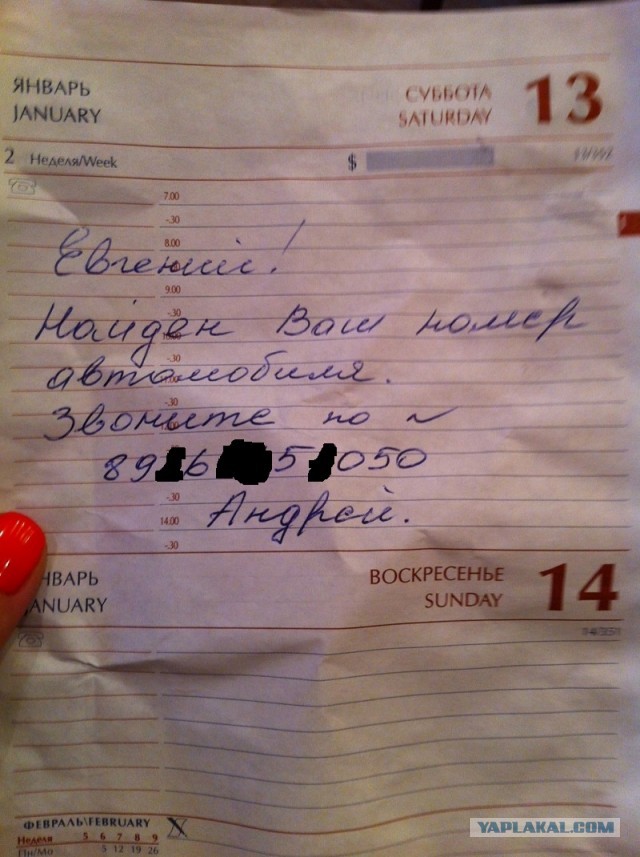 ЯНВАРЬ СУББОТА 13
JANUARY SATURDAY
2 Неделя/Week $
7.00
-30
8.00
Евгений!
9.00
-30
Найден Ваш номер
-30
автомобиля.
-30
Звоните по ~
89 6 5 050
-30
14.00 Андрей.
-30
ЯНВАРЬ ВОСКРЕСЕНЬЕ 14
JANUARY SUNDAY
ФЕВРАЛЬ\FEBRUARY X
Неделя 5 6 7 8 9
Пн/Mo 5 12 19 26
YAPLAKAL.COM